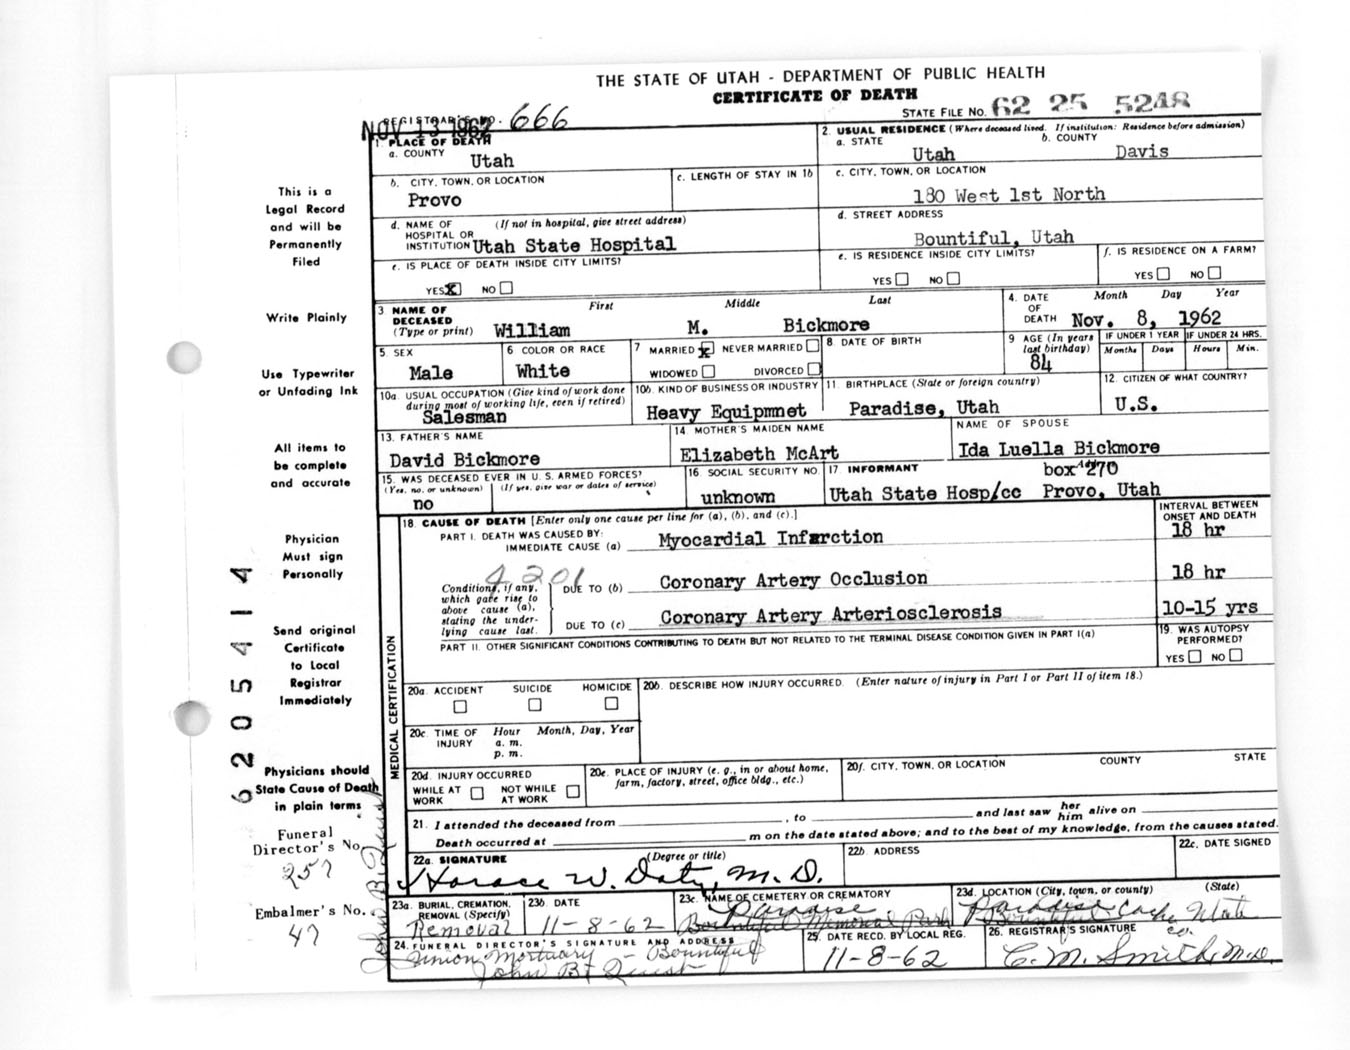 THE STATE OF UTAH - DEPARTMENT OF PUBLIC HEALTH
CERTIFICATE OF DEATH
STATE FILE NO. 62 25 5248
REGISTRAR'S NO. 666
NOV 13 1962
1. PLACE OF DEATH
a. COUNTY Utah
2. USUAL RESIDENCE (Where deceased lived. If institution: Residence before admission)
a. STATE Utah b. COUNTY Davis
b. CITY, TOWN, OR LOCATION Provo
c. LENGTH OF STAY IN 1b
c. CITY, TOWN, OR LOCATION
180 West 1st North
d. NAME OF HOSPITAL OR INSTITUTION (If not in hospital, give street address)
Utah State Hospital
d. STREET ADDRESS
Bountiful, Utah
e. IS PLACE OF DEATH INSIDE CITY LIMITS?
YES X NO
e. IS RESIDENCE INSIDE CITY LIMITS?
YES NO
f. IS RESIDENCE ON A FARM?
YES NO
3 NAME OF DECEASED (Type or print)
First Middle Last
William M. Bickmore
4. DATE OF DEATH Month Day Year
Nov. 8, 1962
5. SEX
Male
6 COLOR OR RACE
White
7 MARRIED X NEVER MARRIED
WIDOWED DIVORCED
8. DATE OF BIRTH
9 AGE (In years last birthday)
84
IF UNDER 1 YEAR
Months Days
IF UNDER 24 HRS.
Hours Min.
10a. USUAL OCCUPATION (Give kind of work done during most of working life, even if retired)
Salesman
10b. KIND OF BUSINESS OR INDUSTRY
Heavy Equipmnet
11. BIRTHPLACE (State or foreign country)
Paradise, Utah
12. CITIZEN OF WHAT COUNTRY?
U.S.
13. FATHER'S NAME
David Bickmore
14 MOTHER'S MAIDEN NAME
Elizabeth McArt
NAME OF SPOUSE
Ida Luella Bickmore
15. WAS DECEASED EVER IN U. S. ARMED FORCES?
(Yes, no, or unknown) (If yes, give war or dates of service)
no
16. SOCIAL SECURITY NO.
unknown
17. INFORMANT
box 270
Utah State Hosp/cc Provo, Utah
MEDICAL CERTIFICATION
18. CAUSE OF DEATH [Enter only one cause per line for (a), (b), and (c).]
INTERVAL BETWEEN ONSET AND DEATH
PART I. DEATH WAS CAUSED BY:
IMMEDIATE CAUSE (a) Myocardial Infarction 18 hr
4201
Conditions, if any, which gave rise to above cause (a), stating the underlying cause last.
DUE TO (b) Coronary Artery Occlusion 18 hr
DUE TO (c) Coronary Artery Arteriosclerosis 10-15 yrs
PART II. OTHER SIGNIFICANT CONDITIONS CONTRIBUTING TO DEATH BUT NOT RELATED TO THE TERMINAL DISEASE CONDITION GIVEN IN PART I(a)
19. WAS AUTOPSY PERFORMED?
YES NO
20a. ACCIDENT SUICIDE HOMICIDE
20b. DESCRIBE HOW INJURY OCCURRED. (Enter nature of injury in Part I or Part II of item 18.)
20c. TIME OF INJURY Hour Month, Day, Year
a. m.
p. m.
20d. INJURY OCCURRED
WHILE AT WORK NOT WHILE AT WORK
20e. PLACE OF INJURY (e. g., in or about home, farm, factory, street, office bldg., etc.)
20f. CITY, TOWN, OR LOCATION COUNTY STATE
21. I attended the deceased from , to and last saw her him alive on
Death occurred at m on the date stated above; and to the best of my knowledge, from the causes stated.
22a. SIGNATURE (Degree or title)
Horace W. Doty, M.D.
22b. ADDRESS
22c. DATE SIGNED
23a. BURIAL, CREMATION, REMOVAL (Specify)
Removal
23b. DATE
11-8-62
23c. NAME OF CEMETERY OR CREMATORY
Paradise
Bountiful Memorial Park
23d. LOCATION (City, town, or county) (State)
Paradise Cache co. Utah
Bountiful
24. FUNERAL DIRECTOR'S SIGNATURE AND ADDRESS
Union Mortuary - Bountiful
25. DATE RECD. BY LOCAL REG.
11-8-62
26. REGISTRAR'S SIGNATURE
C. M. Smith, M.D.
This is a
Legal Record
and will be
Permanently
Filed
Write Plainly
Use Typewriter
or Unfading Ink
All items to
be complete
and accurate
Physician
Must sign
Personally
Send original
Certificate
to Local
Registrar
Immediately
Physicians should
State Cause of Death
in plain terms
Funeral
Director's No.
257
Embalmer's No.
47
6205414